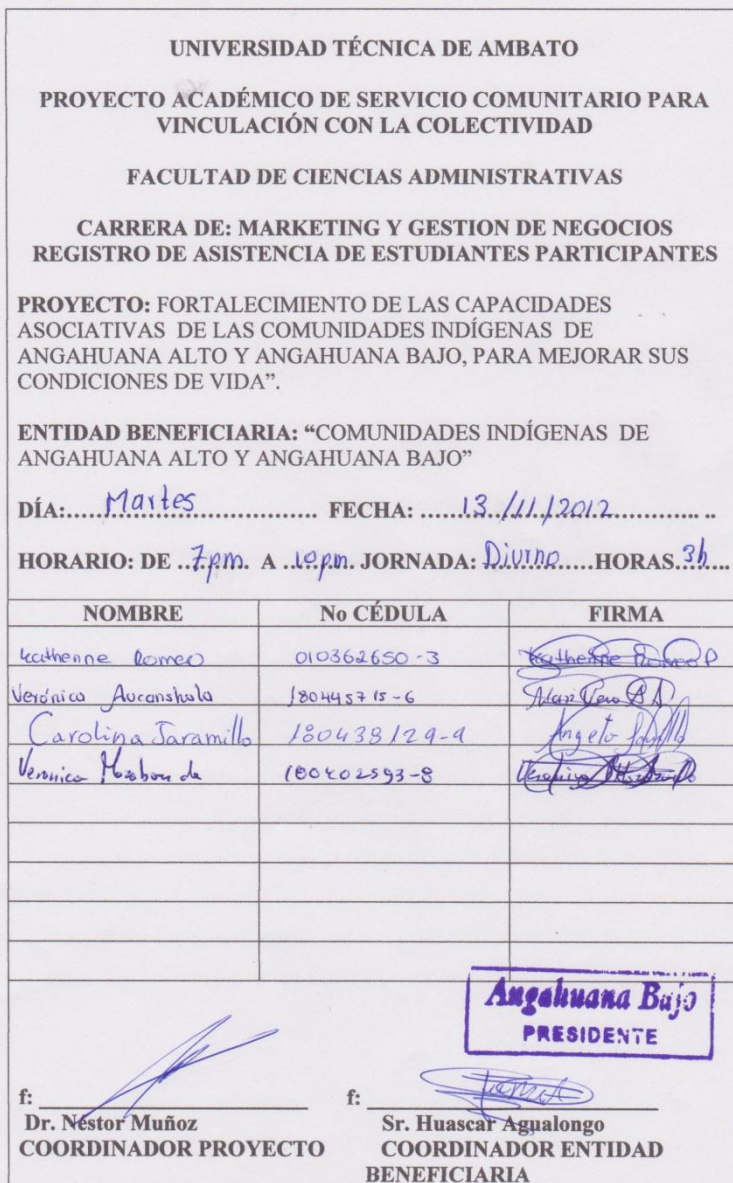 UNIVERSIDAD TÉCNICA DE AMBATO
PROYECTO ACADÉMICO DE SERVICIO COMUNITARIO PARA
VINCULACIÓN CON LA COLECTIVIDAD
FACULTAD DE CIENCIAS ADMINISTRATIVAS
CARRERA DE: MARKETING Y GESTION DE NEGOCIOS
REGISTRO DE ASISTENCIA DE ESTUDIANTES PARTICIPANTES
PROYECTO: FORTALECIMIENTO DE LAS CAPACIDADES
ASOCIATIVAS DE LAS COMUNIDADES INDÍGENAS DE
ANGAHUANA ALTO Y ANGAHUANA BAJO, PARA MEJORAR SUS
CONDICIONES DE VIDA”.
ENTIDAD BENEFICIARIA: “COMUNIDADES INDÍGENAS DE
ANGAHUANA ALTO Y ANGAHUANA BAJO”
DÍA: Martes FECHA: 13/11/2012
HORARIO: DE 7pm. A 10pm. JORNADA: Diurno HORAS 3h
NOMBRE No CÉDULA FIRMA
Katherine Romero 010362650-3 Katherine
Verónica 180445715-6
Carolina Jaramillo 180438129-9
Veronica 180402593-8
Angahuana Bajo
PRESIDENTE
f: f:
Dr. Néstor Muñoz Sr. Huascar Agualongo
COORDINADOR PROYECTO COORDINADOR ENTIDAD
BENEFICIARIA